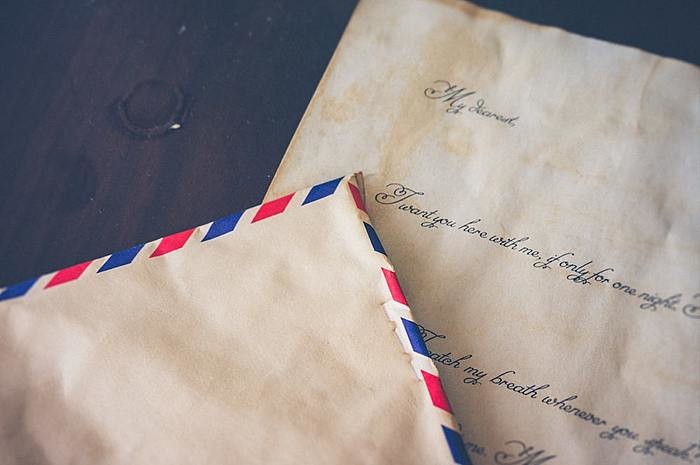 My dearest,
I want you here with me, if only for one night.
catch my breath whenever you speak
me.